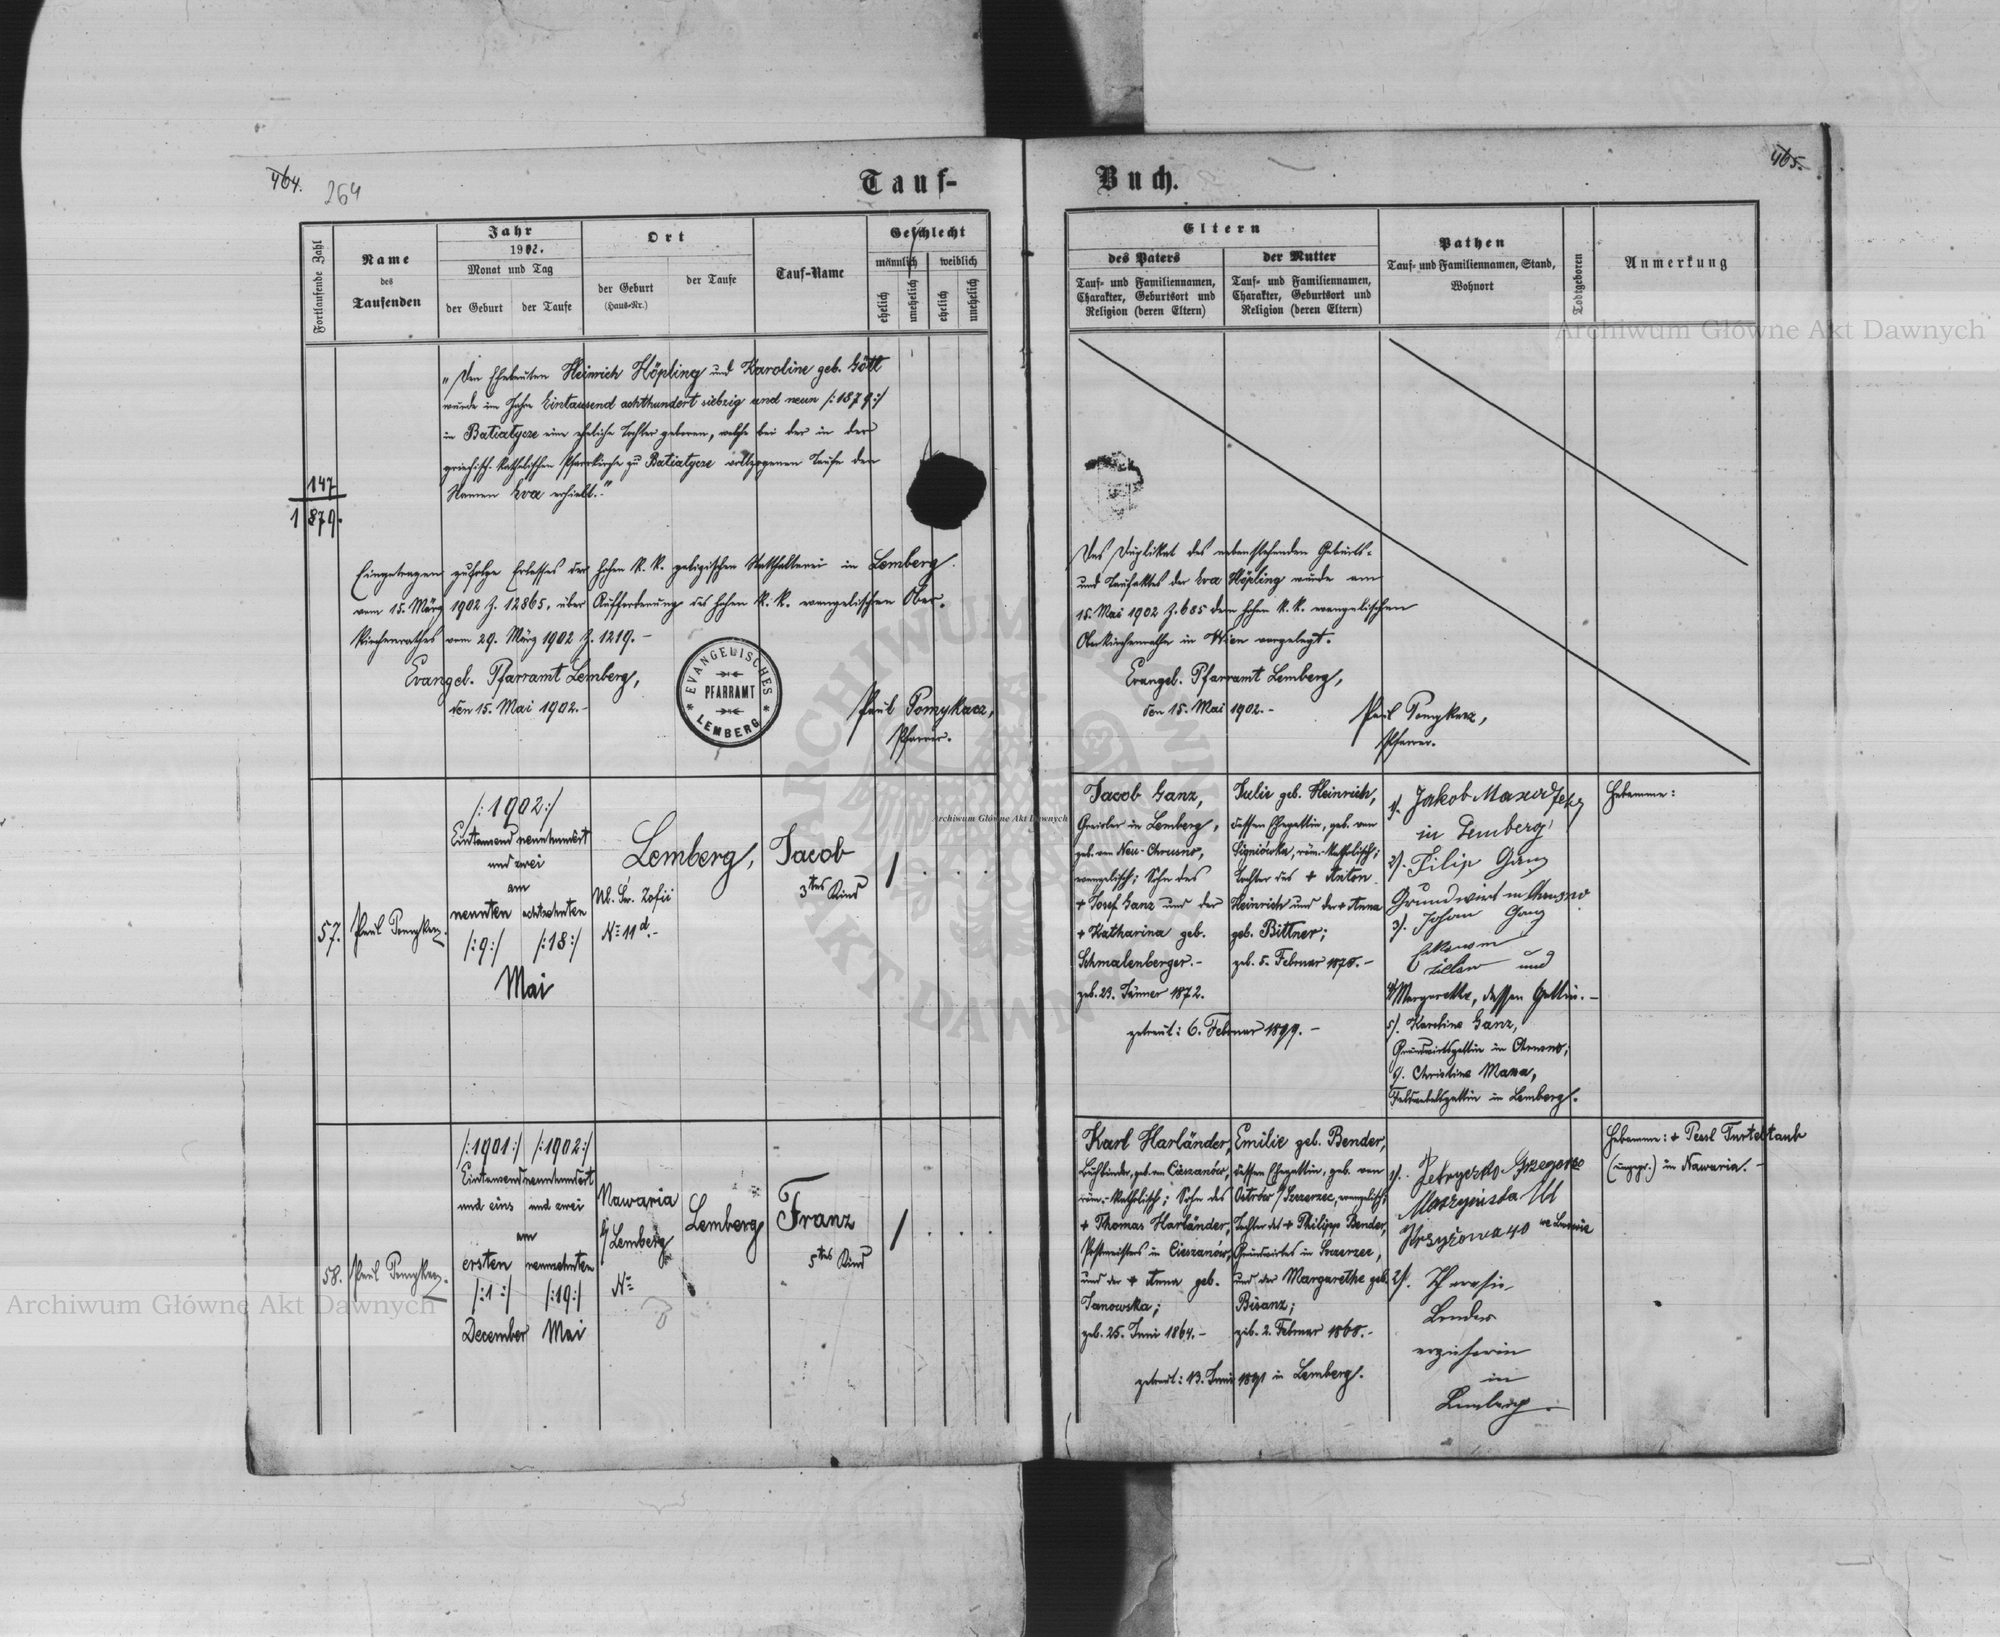 464.
264
Tauf-
Fortlaufende Zahl
Name
des
Taufenden
Jahr
1902.
Monat und Tag
der Geburt
der Taufe
Ort
der Geburt
(Haus-Nr.)
der Taufe
Tauf-Name
Geschlecht
männlich
weiblich
ehelich
unehelich
ehelich
unehelich
147
1879.
„Den Eheleuten Heinrich Höpling und Karoline geb. Gött
wurde im Jahre Eintausend achthundert siebzig und neun /:1879:/
in Batiatycze eine eheliche Tochter geboren, welche bei der in der
griechisch-katholischen Pfarrkirche zu Batiatycze vollzogenen Taufe den
Namen Eva erhielt.“
Eingetragen zufolge Erlasses der hohen k. k. galizischen Statthalterei in Lemberg
vom 15. März 1902 Z. 12865, über Aufforderung des hohen k. k. evangelischen Ober-
kirchenrathes vom 29. März 1902 Z. 1219.-
Evangel. Pfarramt Lemberg,
den 15. Mai 1902.-
EVANGELISCHES
PFARRAMT
LEMBERG
Paul Pomykacz,
Pfarrer.
57.
Paul Pomykacz.
/:1902:/
Eintausend neunhundert
und zwei
am
neunten
achtzehnten
/:9:/
/:18:/
Mai
Lemberg,
Ul. Św. Zofii
Nº 11 d.-
Jacob
3tes Kind
/
58.
Paul Pomykacz.
/:1901:/
/:1902:/
Eintausend neunhundert
und eins
und zwei
am
ersten
neunzehnten
/:1:/
/:19:/
December
Mai
Nawaria
b/ Lemberg
Nº
Lemberg
Franz
5tes Kind
/
465.
Buch.
Eltern
des Vaters
Tauf- und Familiennamen,
Charakter, Geburtsort und
Religion (deren Eltern)
der Mutter
Tauf- und Familiennamen,
Charakter, Geburtsort und
Religion (deren Eltern)
Pathen
Tauf- und Familiennamen, Stand,
Wohnort
Todtgeboren
Anmerkung
Das Duplikat des nebenstehenden Geburts-
und Taufaktes der Eva Höpling wurde am
15. Mai 1902 Z. 685 dem hohen k. k. evangelischen
Oberkirchenrathe in Wien vorgelegt.
Evangel. Pfarramt Lemberg,
den 15. Mai 1902.-
Paul Pomykacz,
Pfarrer.
Jacob Ganz,
Greisler in Lemberg,
geb. von Neu-Chrusno,
evangelisch; Sohn des
+ Josef Ganz und der
+ Katharina geb.
Schmalenberger.-
geb. 23. Jänner 1872.
Julie geb. Heinrich,
dessen Ehegattin, geb. von
Signiówka, röm.-katholisch;
Tochter des + Anton
Heinrich und der + Anna
geb. Bittner;
geb. 5. Februar 1878.-
getraut: 6. Februar 1899.-
1/. Jakob
in Lemberg
2/. Filip Ganz
Grundwirt in Chrusno
3/. Johan Ganz
und
4/ Margarethe, dessen Gattin.-
5/. Karoline Ganz,
Grundwirtsgattin in Chrusno;
6/. Christine Mama,
Feldwebelsgattin in Lemberg.
Hebamme:
Karl Harländer,
Buchbinder, geb. von Cieszanów,
röm.-katholisch; Sohn des
+ Thomas Harländer,
Postmeisters in Cieszanów,
und der + Anna geb.
Janowska;
geb. 25. Juni 1864.-
Emilie geb. Bender,
dessen Ehegattin, geb. von
Ostrów b/ Szczerzec, evangelisch;
Tochter des + Philipp Bender,
Grundwirtes in Szczerzec,
und der Margarethe geb.
Bisanz;
geb. 2. Februar 1868.-
getraut: 13. Juni 1891 in Lemberg.
1/. Petryszko Grzegorz
2/.
Bender
erzieherin
in
Lemberg.
Hebamme: + Perl Turteltaub
(ungepr.) in Nawaria.-
Archiwum Główne Akt Dawnych
Archiwum Główne Akt Dawnych
Archiwum Główne Akt Dawnych
ARCHIWUM GŁÓWNE
AKT DAWNYCH